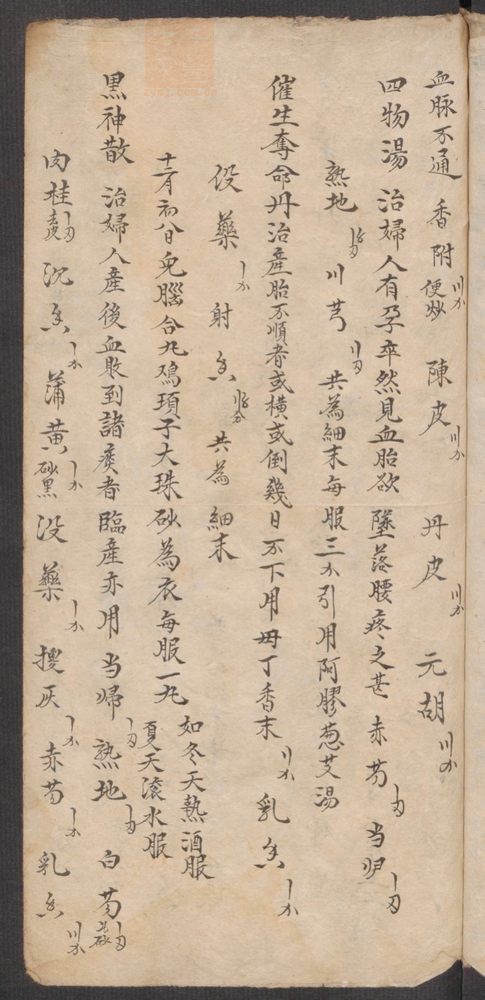 血脉不通 香附便炒刂分 陳皮刂分 丹皮刂分 元胡刂分
四物湯 治婦人有孕卒然見血胎欲墜落腰疼之甚 赤芍 当归
熟地 川芎 共為細末每服三分引用阿膠葱艾湯
催生奪命丹治產胎不順者或橫或倒幾日不下用母丁香末 乳香
沒藥 射香 共為細末
十二月初八日兔腦合丸鷄頭子大珠砂為衣每服一丸 如冬天熱酒服 夏天滾水服
黑神散 治婦人產後血敗到諸疾者臨產亦用 当归 熟地 白芍
肉桂 沉香 蒲黃炒黑 沒藥 灰 赤芍 乳香